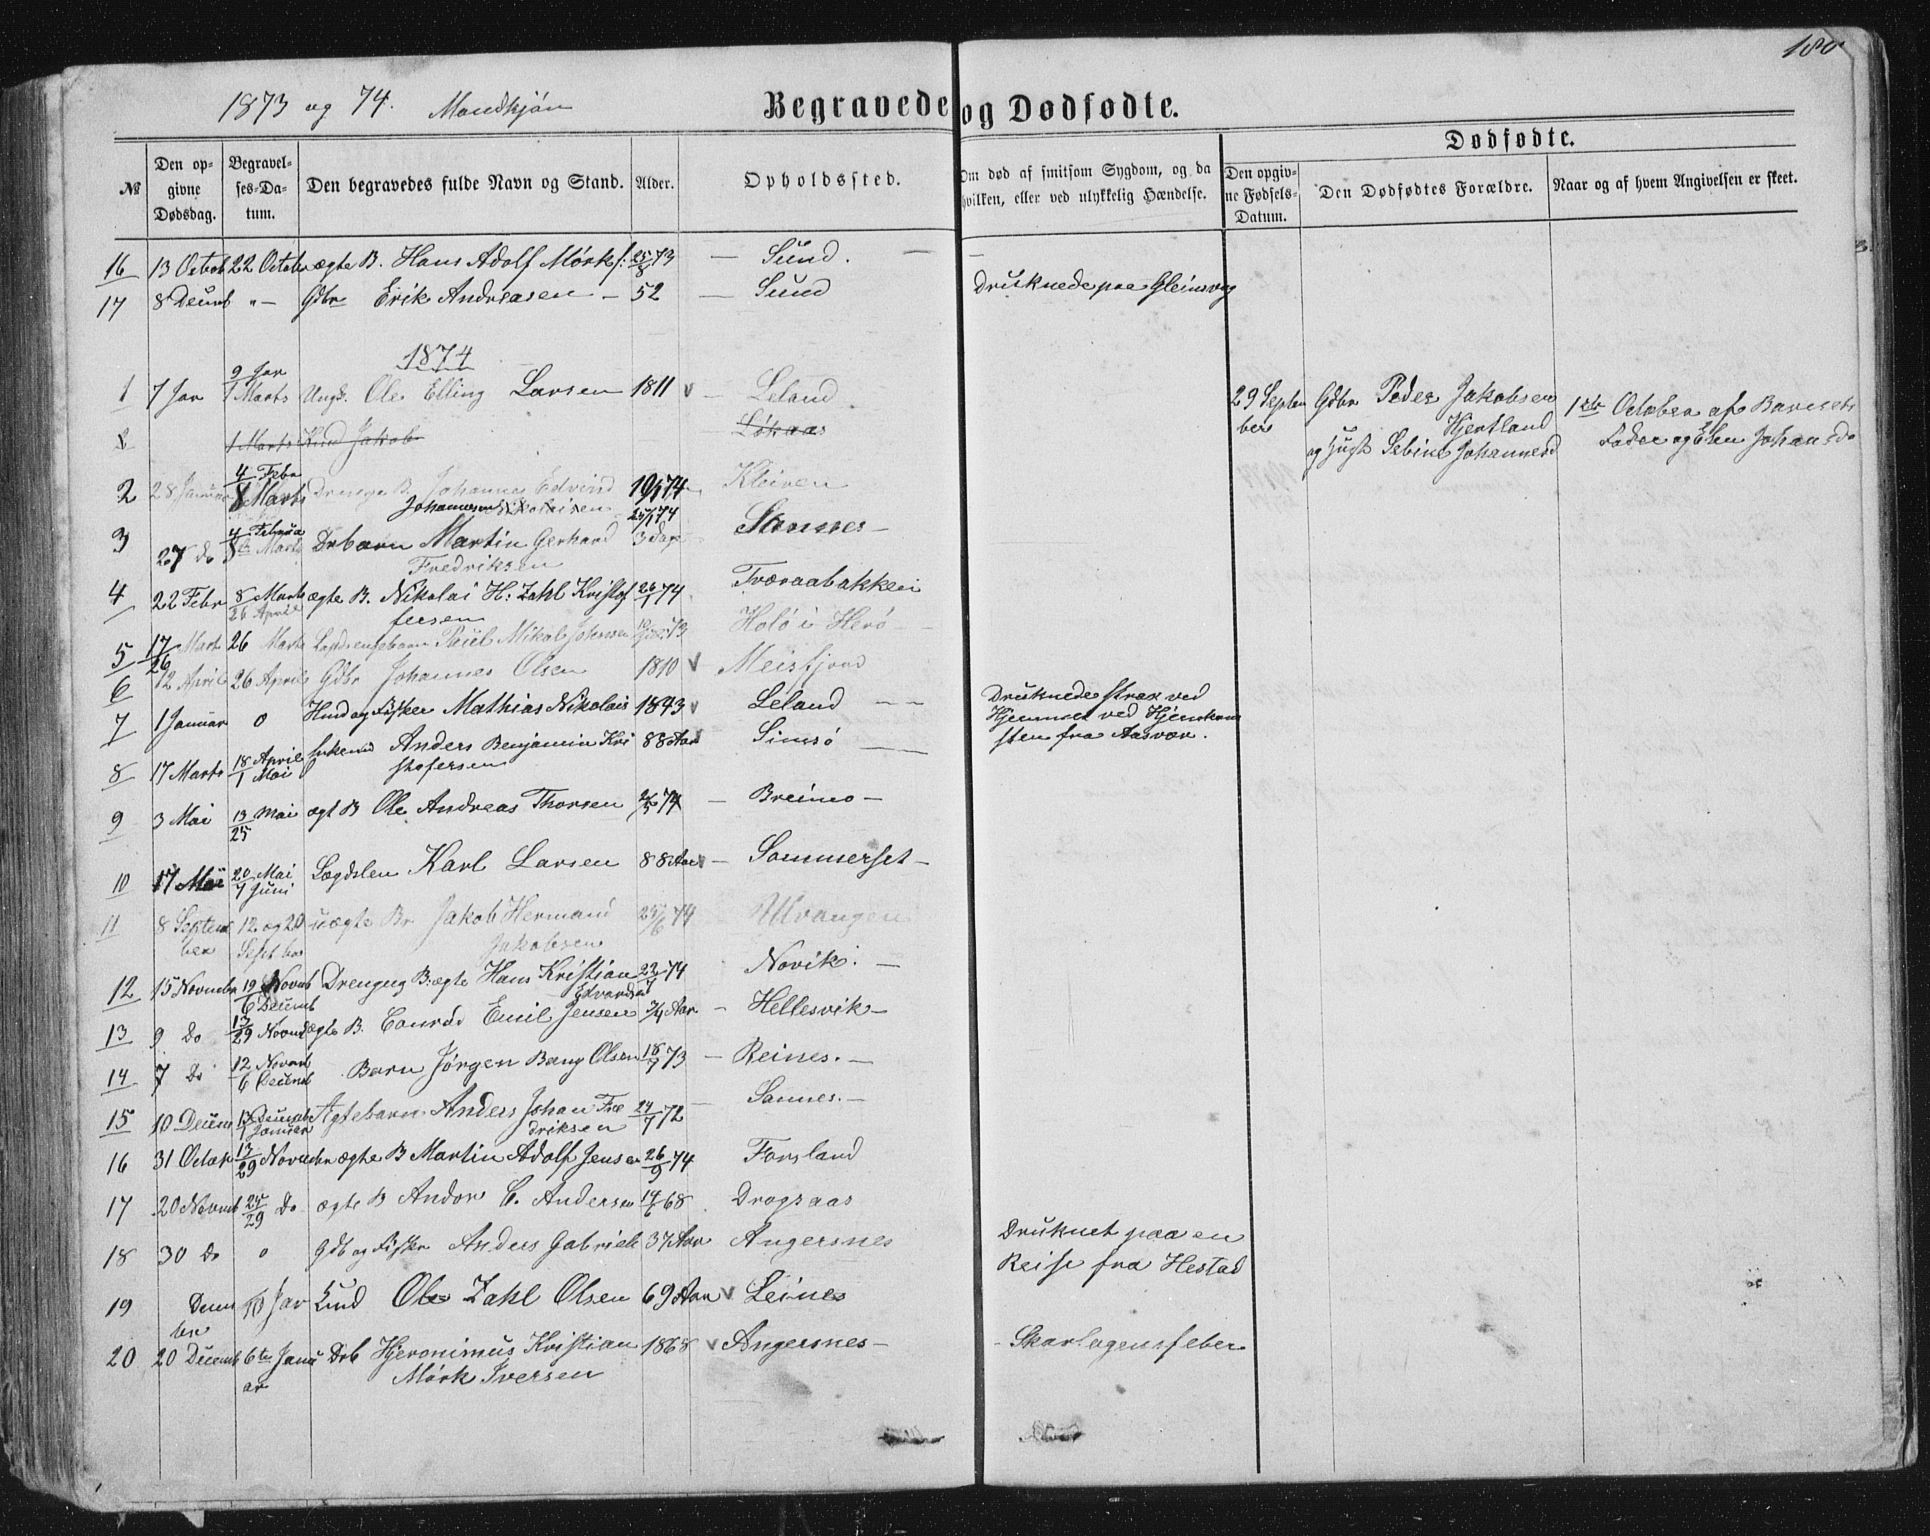 180
1873 og 74. Mandkjön
Begravede og Dödfödte.
Dödfödte.
№
Den opgivne Dødsdag.
Begravelses-Datum.
Den begravedes fulde Navn og Stand.
Alder.
Opholdssted.
Om død af smitsom Sygdom, og da hvilken, eller ved ulykkelig Hændelse.
Den opgivne Fødsels-Datum.
Den Dødfødtes Forældre.
Naar og af hvem Angivelsen er skeet.
16 13 Octob 22 Octobr ægte B. Hans Adolf Mörk 25/8 73 — Sund. —
17 8 Decemb "— Gdbr Erik Andreasen — 52 — Sund Druknede paa Gleinsvag
1874
1 7 Jar 9 Jar / 1 Marts Ungk. Ole Elling Larsen 1811 — Leland
29 September Gdbr Peder Jakobsen Hjertland og Sebine Johannesd 1ste October af Barnets Fader og Johansda
2 1 Marts Jakob Lökaas
2 28 Januar 4 Febr / 8 Marts Drenge B Johannes Edvind Johannesen 19/1 74 Klöiven
3 27 Do 4 Februa / 8de Marts Drbarn Martin Gerhard Fredriksen 24/1 74 3 Dage Sannes —
4 22 Febr 8 Marts / 26 April ægte B. Nikolai H: Zahl Kristoffersen 26/1 74 Tværaabakken
5 17 Marts 26 Marts Mikal Johnsen 73 Holö i Herö
6 12 April 26 April Gdbr Johannes Olsen 1810 Meisfjord
7 1 Januar o Huus og Fisker Mathias Nikolais 1843 Leland — — Druknede strax ved Hjemmet ved Hjemkomsten fra Aasvær.
8 17 Marts 18 April / 1 Mai Anders Benjamin Kristofersen 88 Aar Simsö — —
9 3 Mai 13 Mai / 25 ægt B Ole Andreas Thorsen 74 — Breimo —
10 17 Mai 20 Mai / 7 Juni Lægdslem Karl Larsen 88 Aar — Sommerset —
11 8 September 12 og 20 Septbr uægte Br Jakob Hermand Jakobsen 25/6 74 Ulvangen
12 15 Novembr 19 Novmb / 6 Decemb Dreng ægte Hans Kristian Edvardsen 22/7 74 Novik. —
13 9 Do 13/29 Novmb ægte B. Conrad Emil Jensen 3/4 Aar — Hellesvik —
14 7 Do 12 Novmb / 6 Decemb Barn Jörgen Bang Olsen 18/7 73 — Reines. —
15 10 Decem 13 Decembr / 1 Januar Ægtebarn Anders Johan Fredriksen 24/7 72 — Sannes. —
16 31 Octob 13/29 Novembr ægte B Martin Adolf Jensen 26/9 74 Forsland
17 20 Novmb 25/29 Do ægte B Andor C. Andersen 14/6 68 Dragsaas
18 30 Do o Gdb og Fisker Anders Gabriels 37 Aar Angersnes Druknet paa en Reise fra Hestad
19 December 10 Jar Ole Zahl Olsen 69 Aar Leines
20 20 Decemb 6te Januar Drb Hjeronimus Kristian Mörk Iversen 1868 Angersnes — Skarlagensfeber